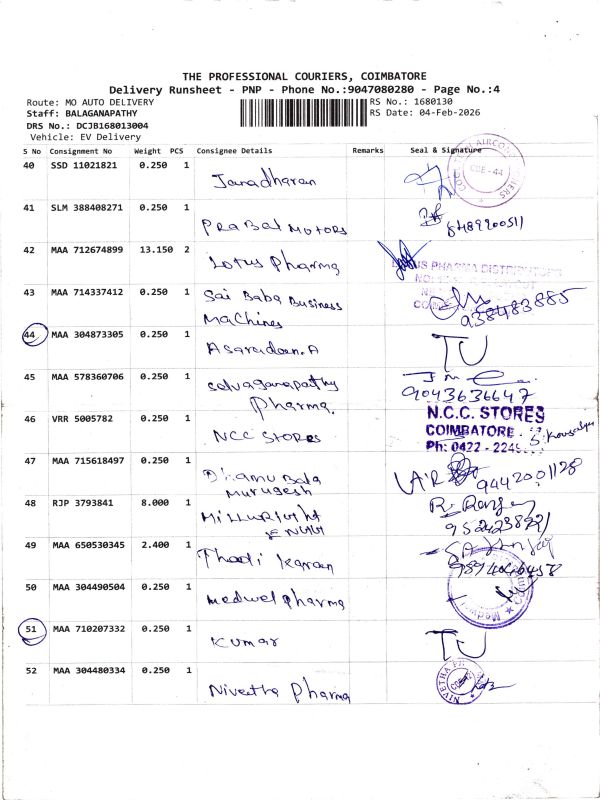 THE PROFESSIONAL COURIERS, COIMBATORE
Delivery Runsheet - PNP - Phone No.:9047080280 - Page No.:4
Route: MO AUTO DELIVERY
RS No.: 1680130
Staff: BALAGANAPATHY
RS Date: 04-Feb-2026
DRS No.: DCJB168013004
Vehicle: EV Delivery
S No Consignment No Weight PCS Consignee Details Remarks Seal & Signature
40 SSD 11021821 0.250 1 Janadharan
COE - 44
41 SLM 388408271 0.250 1 PRABAL MOTORS
8489200511
42 MAA 712674899 13.150 2 Lotus Pharma
PHARMA DISTRIBUTORS
43 MAA 714337412 0.250 1 Sai Baba Business
Machines
938483885
44 MAA 304873305 0.250 1
TU
45 MAA 578360706 0.250 1 selvaganapathy
Pharma.
9043636647
46 VRR 5005782 0.250 1 NCC STORES
N.C.C. STORES
COIMBATORE -
Ph: 0422 - 2249
47 MAA 715618497 0.250 1 Dhamu Bala
Murugesh
9442001128
48 RJP 3793841 8.000 1
49 MAA 650530345 2.400 1
50 MAA 304490504 0.250 1 Medwel pharma
51 MAA 710207332 0.250 1 Kumar
TU
52 MAA 304480334 0.250 1 Nivetha Pharma
NIVETHA